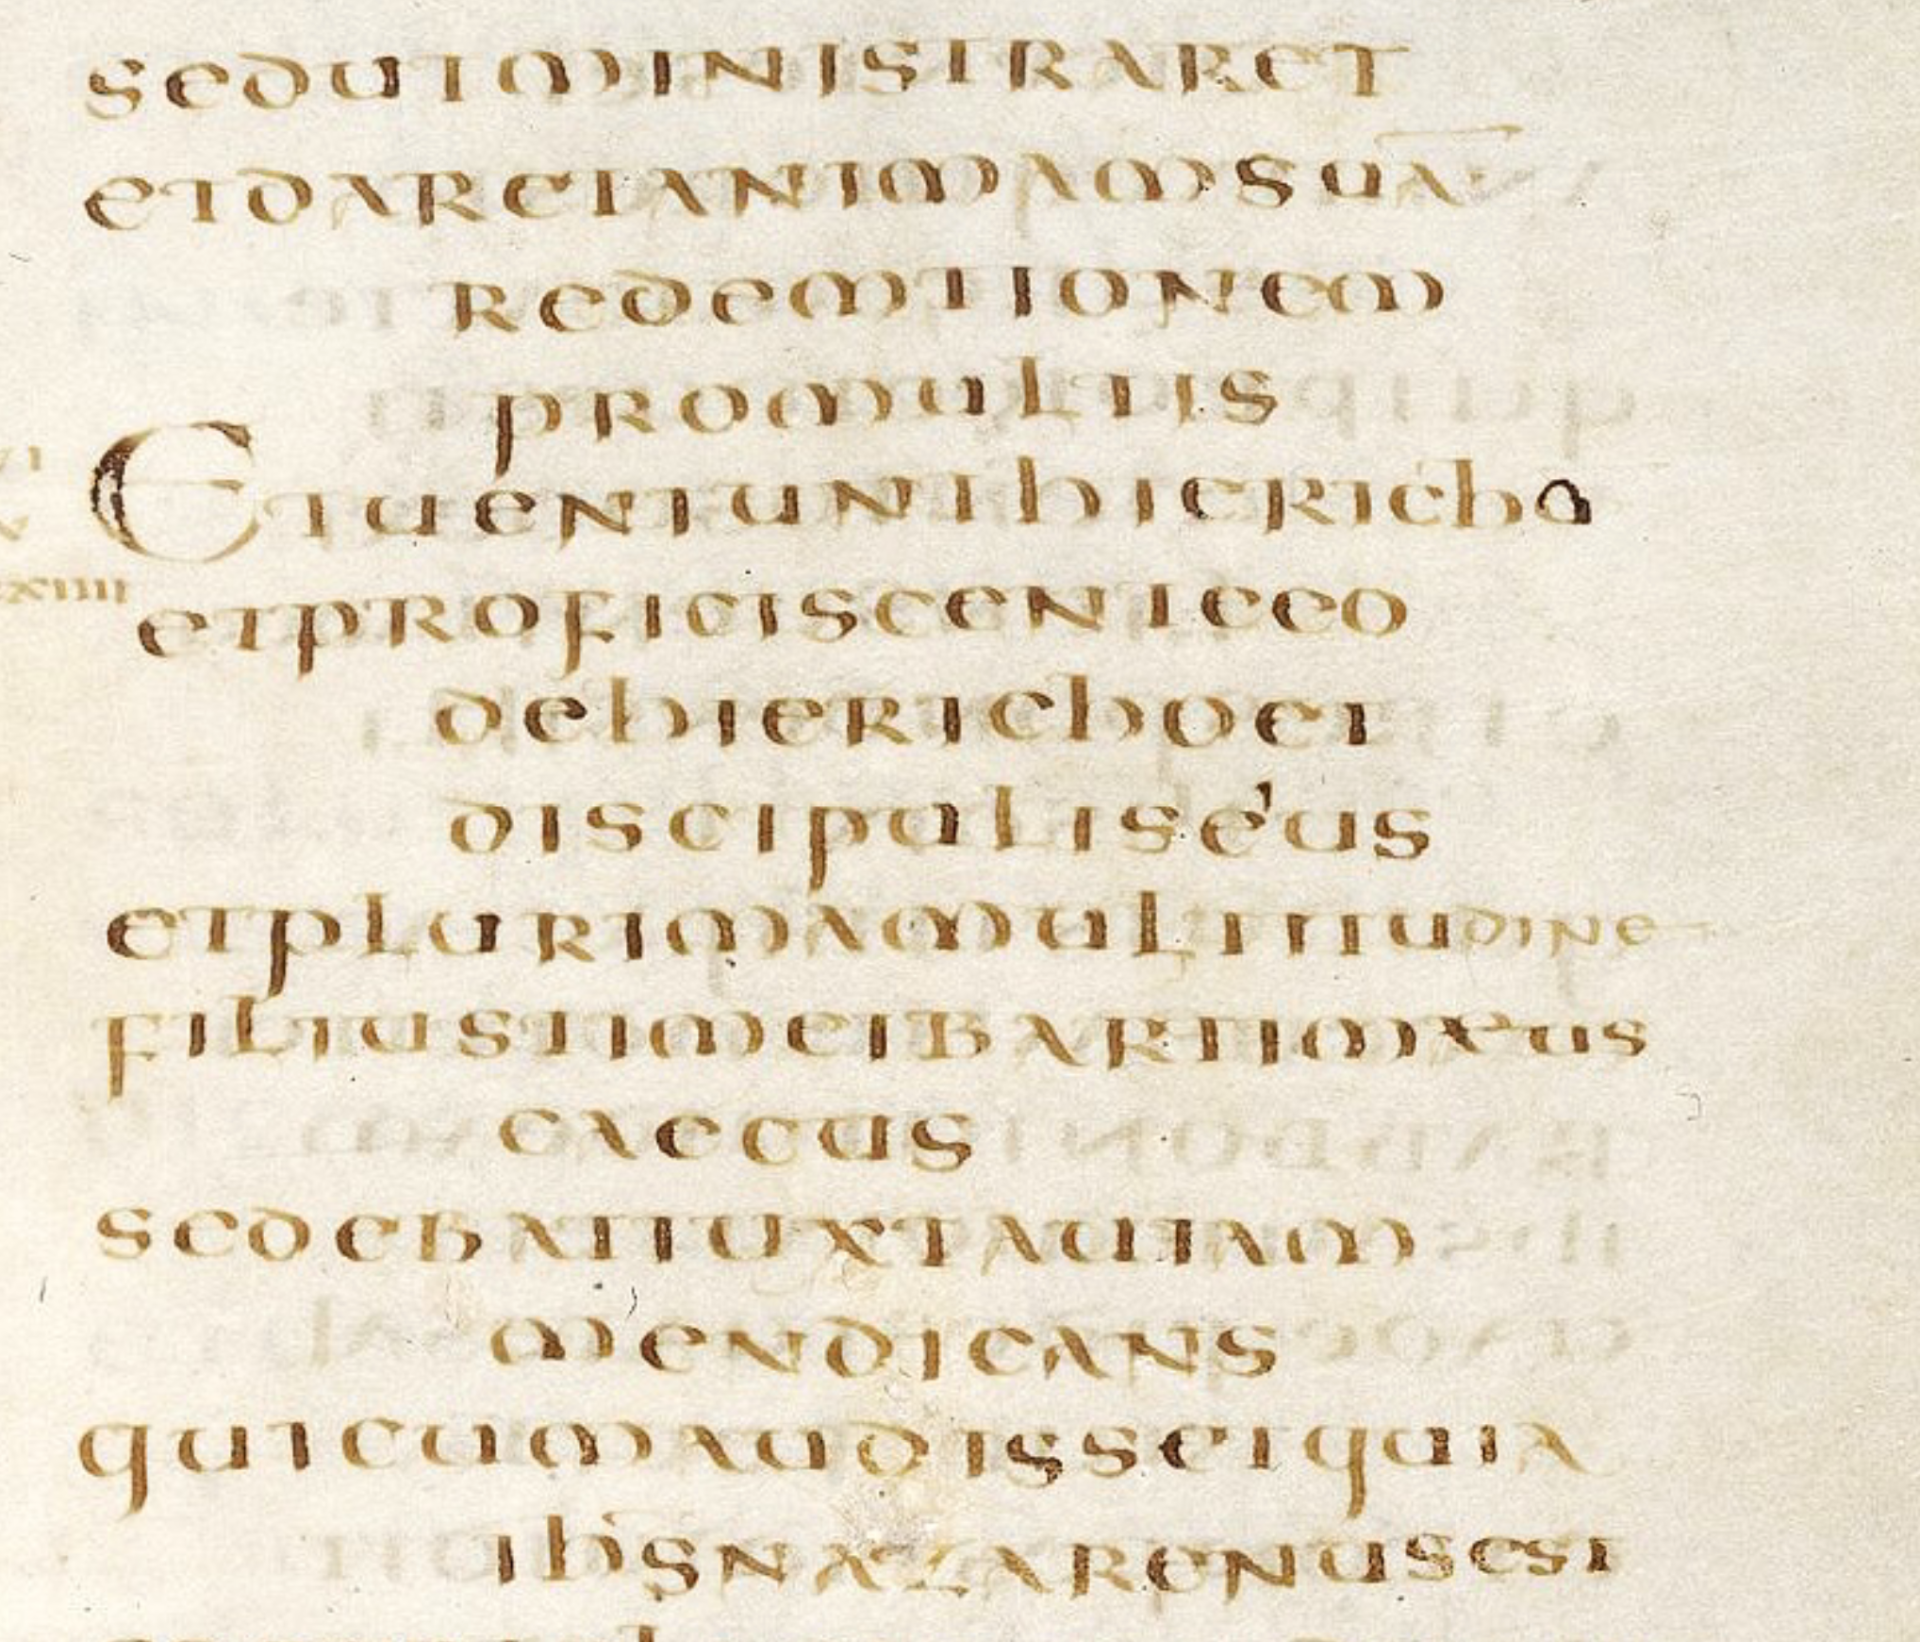 sedutministraret
etdaretanimamsuā
redemtionem
promultis
Etueniunthiericho
etproficiscenteeo
dehierichoet
discipuliseius
etplurimamultitudine
filiustimeibartimeus
caecus
sedebatiuxtauiam
mendicans
quicumaudissetquia
ihsnazarenusest